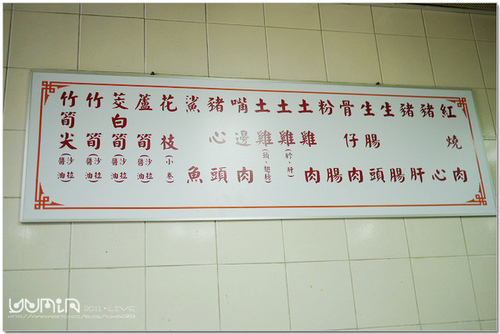 紅燒肉
豬心
豬肝
生腸
生腸頭
骨仔肉
粉腸
土雞肉
土雞(胗・肝)
土雞
嘴邊肉
豬心頭
鯊魚
花枝(小卷)
蘆筍(沙拉 醬油)
茭白筍(沙拉 醬油)
竹筍(沙拉 醬油)
竹筍尖(沙拉 醬油)
YUMIN 2011・LIVE